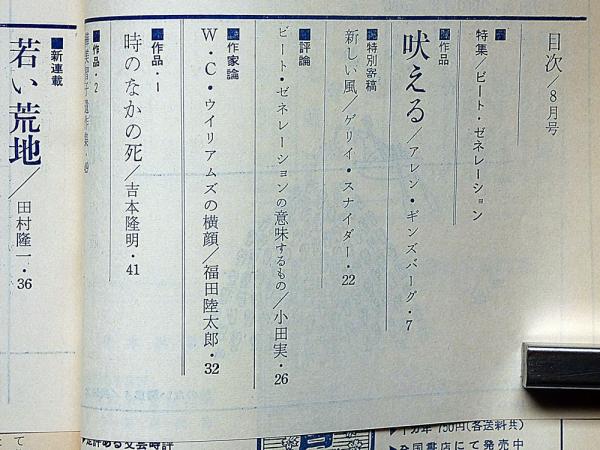 目次／8月号
特集／ビート・ゼネレーション
■作品
吠える／アレン・ギンズバーグ・7
■特別寄稿
新しい風／ゲリイ・スナイダー・22
■評論
ビート・ゼネレーションの意味するもの／小田実・26
■作家論
W・C・ウイリアムズの横顔／福田陸太郎・32
■作品・1
時のなかの死／吉本隆明・41
■作品・2
■新連載
若い荒地／田村隆一・36
750円(各送料共)
▶全国書店にて発売中
定評ある文芸時評